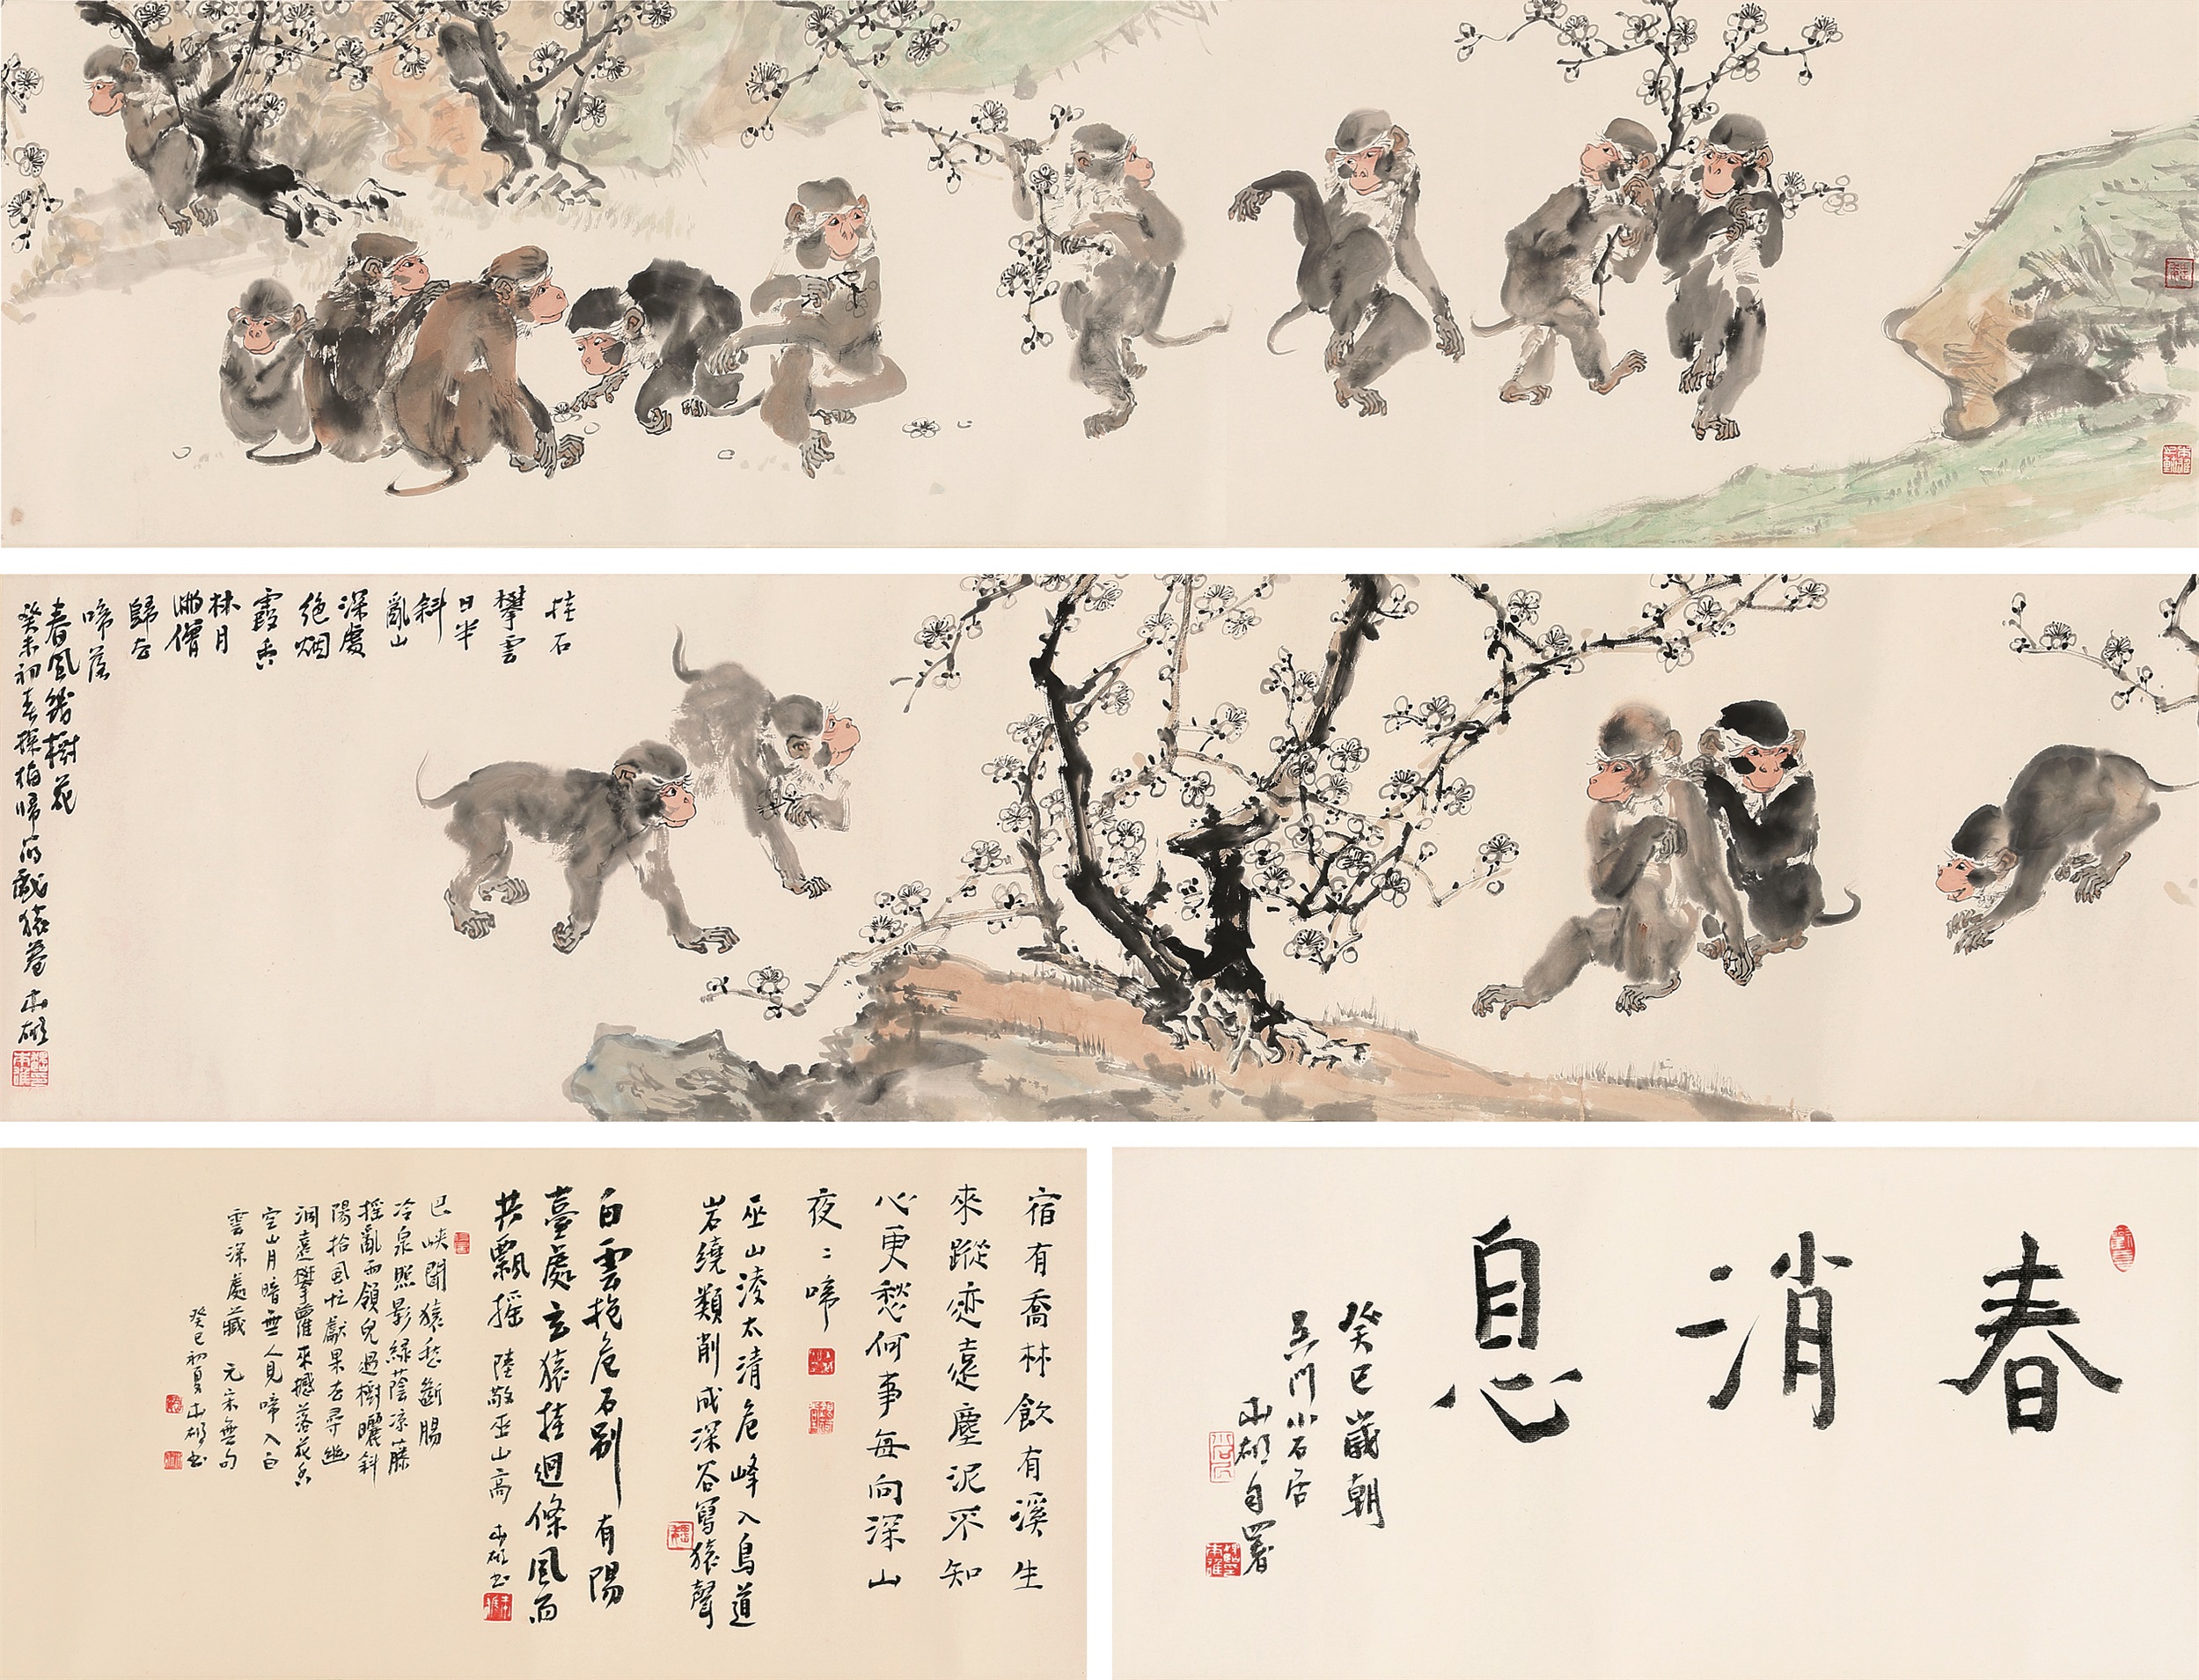 挂石
攀雲
日半
斜
亂山
深處
絶烟
霞香
林月
滿僧
歸去
啼落
春風幾樹花
癸未初春探梅歸而戲猿卷 本雄
春消息
癸巳歲朝
吳門小石居
本雄自署
宿有喬林飲有溪生
來蹤迹遠塵泥不知
心更愁何事每向深山
夜〻啼
巫山淩太清危峰入鳥道
岩繞類削成深谷寫猿聲
白雲抱危石別有陽
臺處玄猿挂迴條風雨
共飄摇 陸敬巫山高 本雄書
巴峽聞猿愁斷腸
冷泉照影緑蔭凉藤
摇亂雨領兒過樹曬斜
陽拾風忙獻果去尋幽
洞遠攀蘿來撼落花香
空山月暗無人見啼入白
雲深處藏 元宋無句
癸巳初夏本雄書